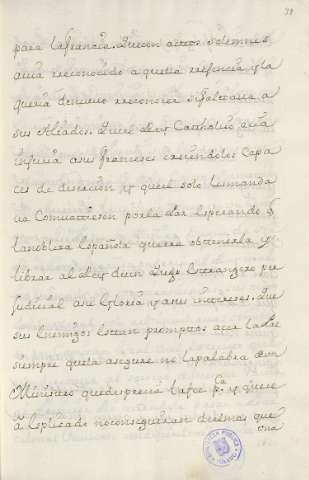 39
para la francia. Que con actos solemnes
avia rreconocido aquella rrexencia y la
queria denuevo rreconocer si faltava a
sus Aliados. Que el Rey Catholico avia
injuria a sus franceses creiendoles capa
ces de desercion y que el solo lamanda
va Comvattiesen por la Paz esperando q
la nobleza española quiera obtenerla y
librar al Rey de un Yugo estrangero per
judicial a su Gloria y a sus intereses. Que
sus Enemigos estan promptos acer la Paz
siempre que la asegure no la palabra de un
Ministro que desprecia la fee p.ca y que se
a esplicado no conseguiran de el mas que
una